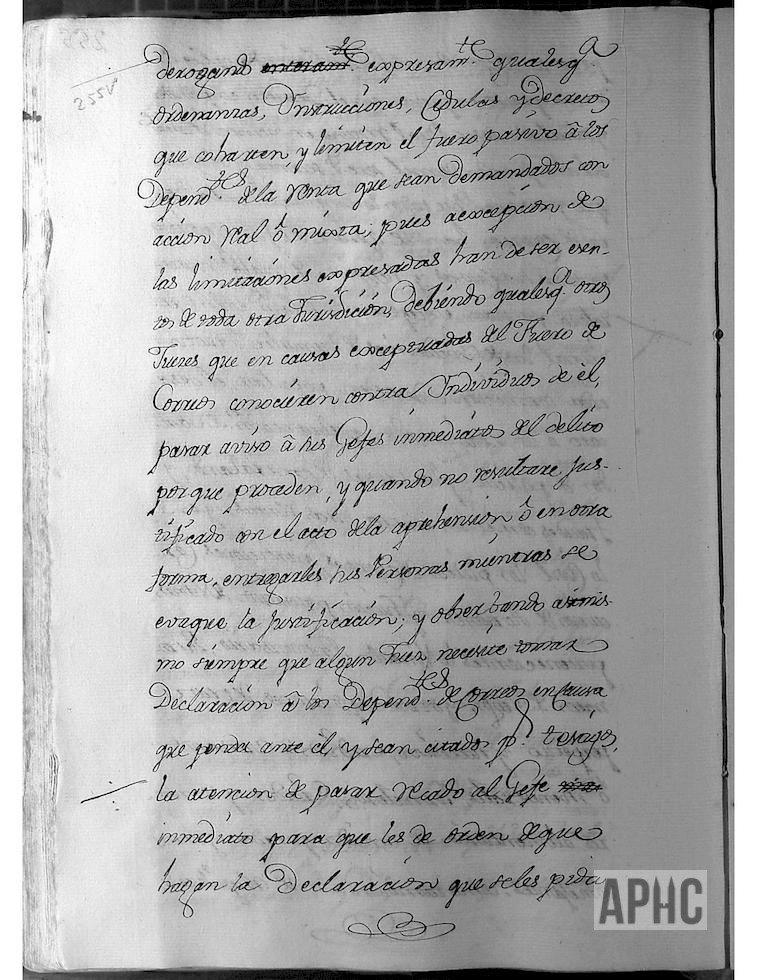 255v
derogando enteram.te expresam.te qualesq.a
ordenanzas, Ynstrucciónes, Cédulas y decretos
que coharten, y limiten el fuero pasivo â los
Depend.tes de la renta que sean demandados con
acción real ô mixta; pues aexcepción de
las limitaciónes expresadas han de ser esen-
tos de toda otra Jurisdición, debiendo qualesq.a otros
Jueces que en causas exceptuadas del Fuero de
Correos conocieren contra Yndivíduos de él,
pasar avíso â sus Gefes inmediátos del delito
porque proceden, y quando no resultare jus-
tificado en el acto dela aprehension ô en otra
forma, entregarles sus Personas miéntras se
evaque la justificación; y observando asimis-
mo siempre que algun Juez necesite tomar
Declaración â los Depend.tes de Correos en Causa
que penda ante él y sean citados p.r testígos,
la atencion de pasar recado al Gefe
inmediáto para que les de orden de que
hagan la Declaración que seles pida
APHC